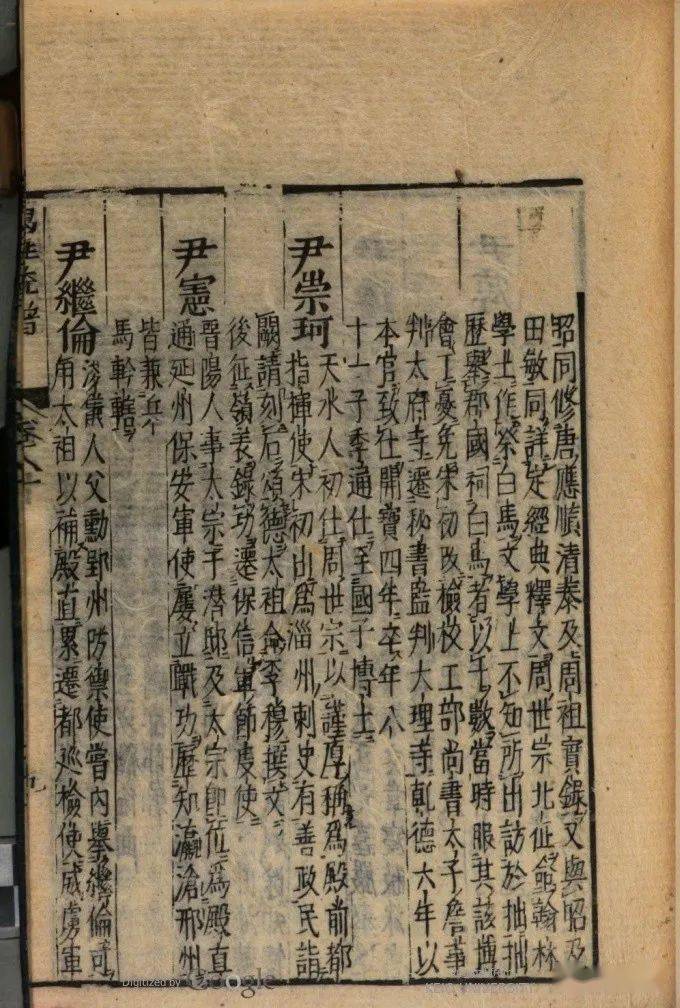 昭同修唐應順清泰及周祖實錄又與昭及
田敏同詳定經典釋文周世宗北征命翰林
學士作祭白馬文學士不知所出訪於拙拙
歷舉郡國祠白馬者以十數當時服其該博
會丁憂免宋初改檢校工部尚書太子詹事
判太府寺遷秘書監判大理寺乾德六年以
本官致仕開寶四年卒年八
十一子季通仕至國子博士
尹崇珂
天水人初仕周世宗以謹厚稱爲殿前都
指揮使宋初出爲淄州刺史有善政民詣
闕請刻石頌德太祖命李穆撰文
後征嶺表錄功遷保信軍節度使
尹憲
晉陽人事太宗于濳邸及太宗卽位爲殿直
通延州保安軍使屢立戰功歷知瀛滄邢州
皆兼兵
馬鈐轄
尹繼倫
浚儀人父勳郢州防禦使嘗內舉繼倫可
用太祖以補殿直累遷都巡檢使威虜軍
萬姓統譜
卷八十
九
Digitized by Google